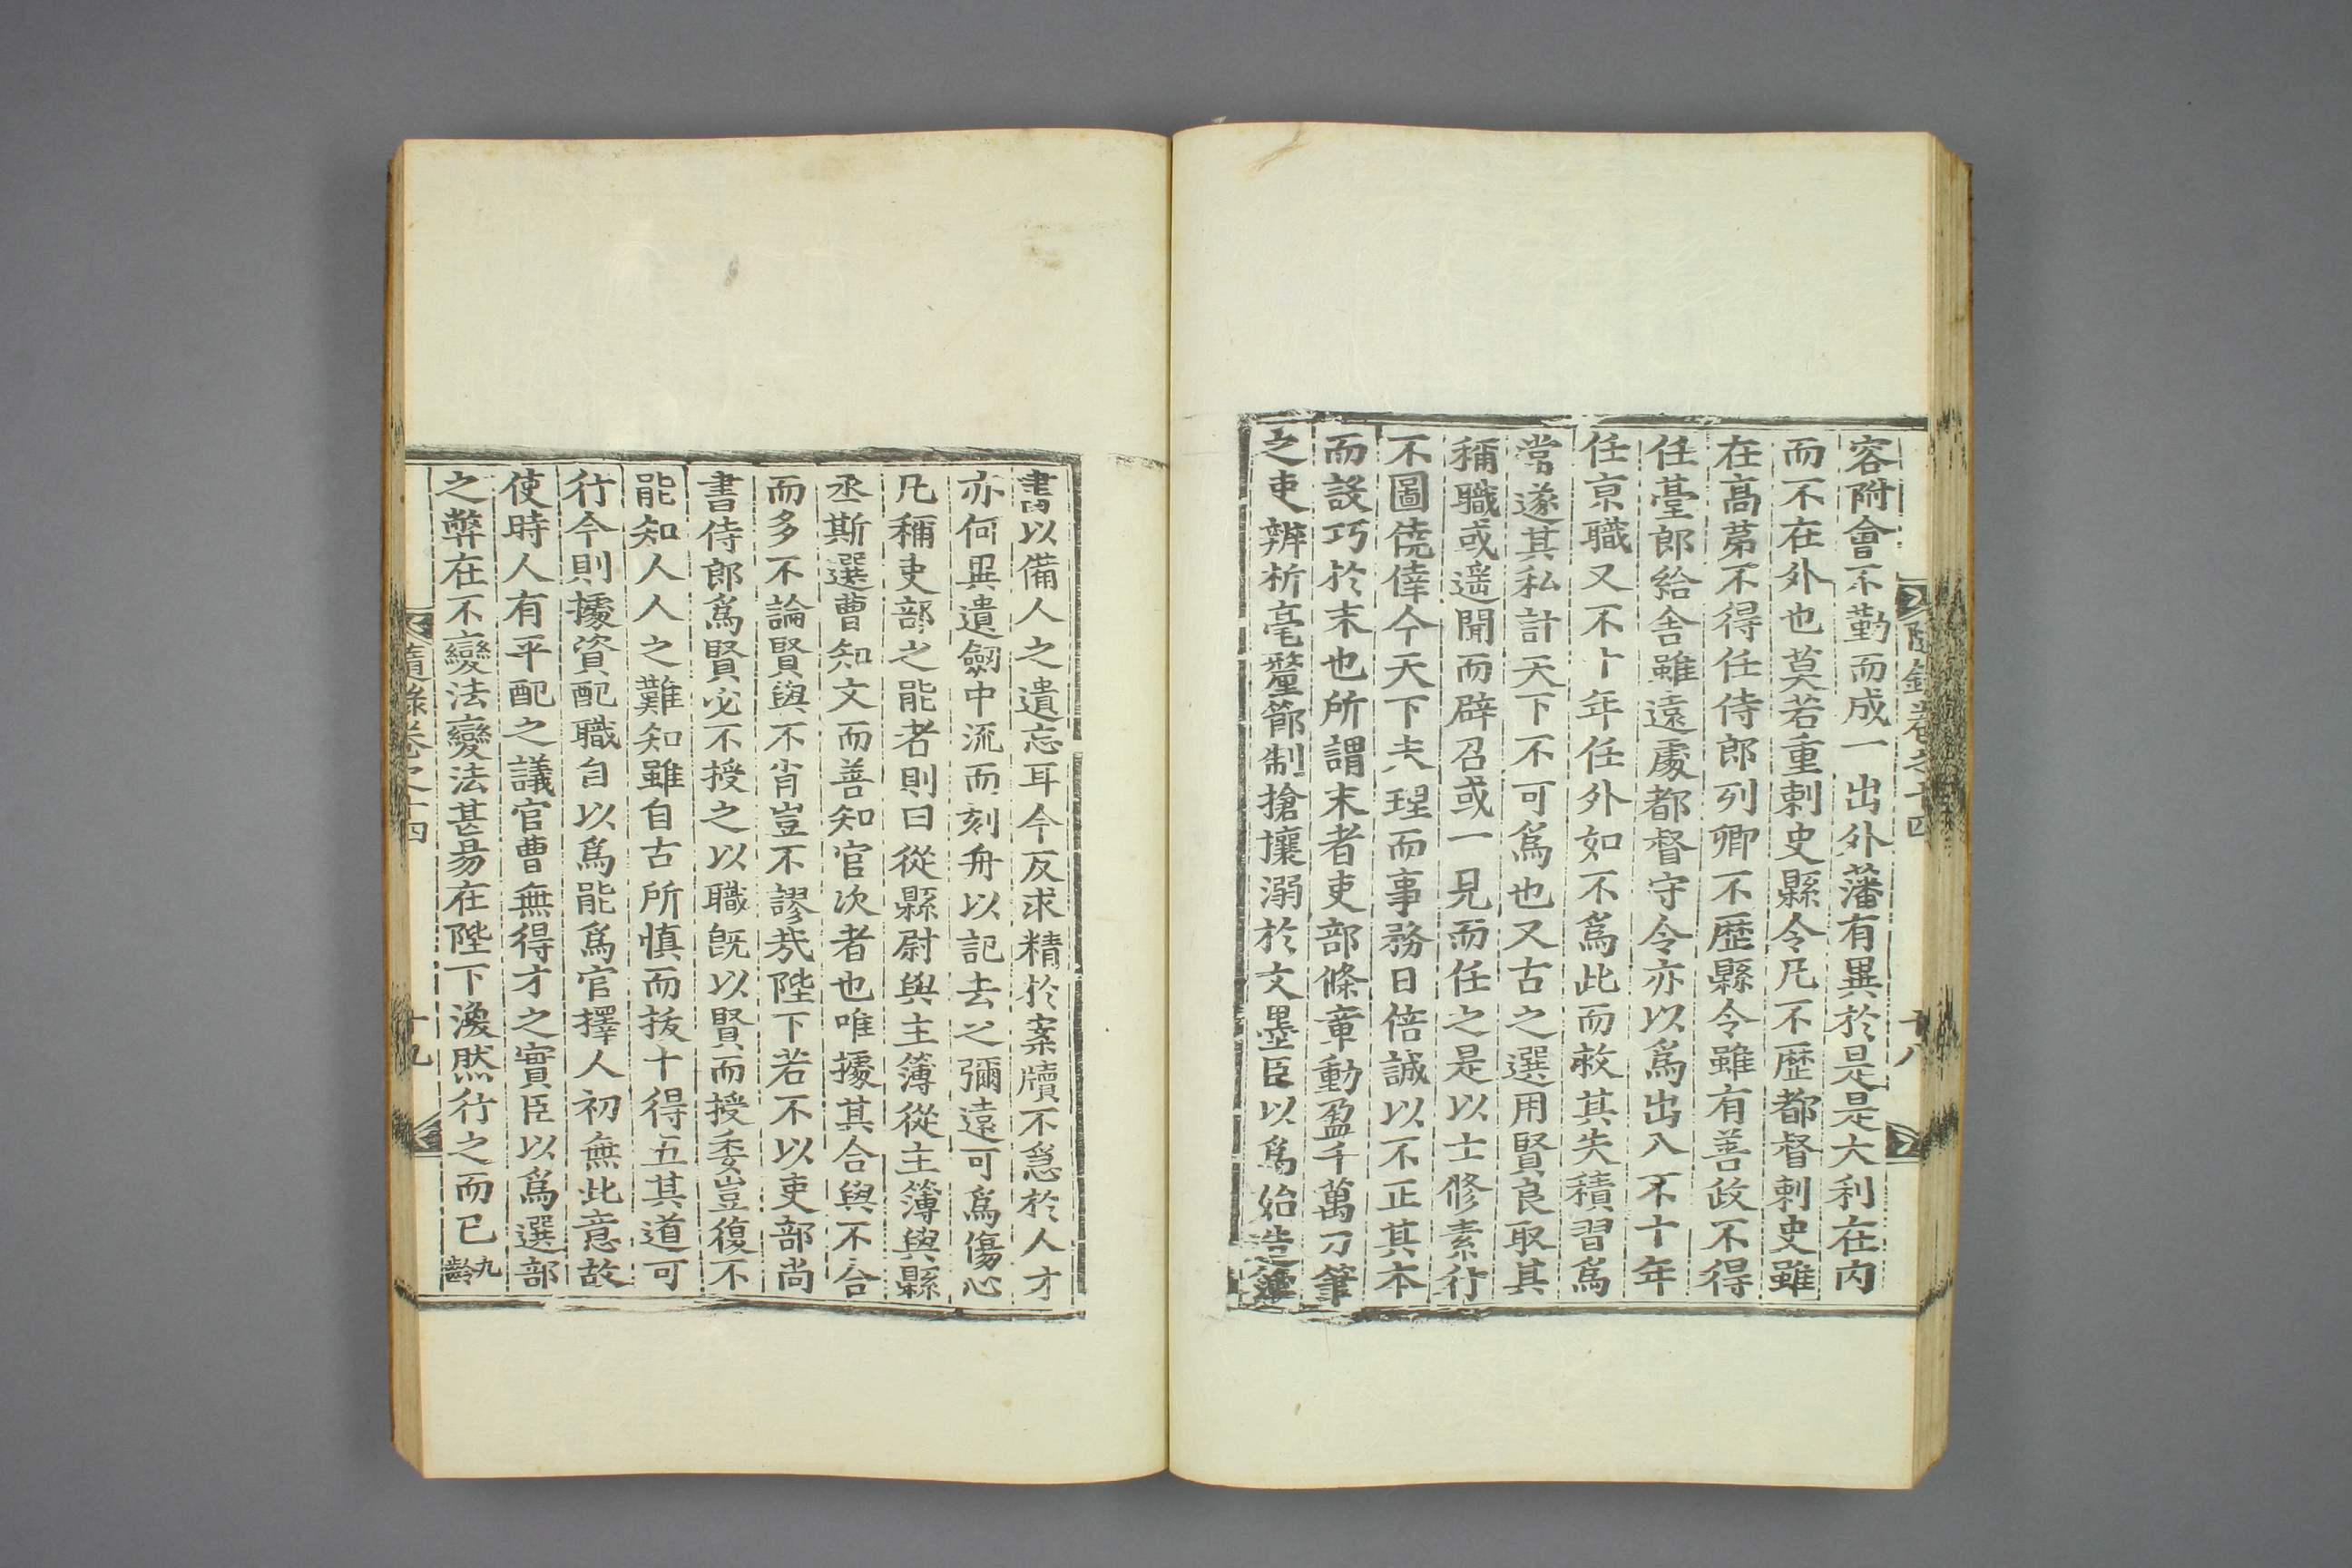 容附會不勤而成一出外藩有異於是是大利在內
而不在外也莫若重刺史縣令凡不歷都督刺史雖
在高第不得任侍郎列卿不歷縣令雖有善政不得
任臺郎給舍雖遠處都督守令亦以爲出入不十年
任京職又不十年任外如不爲此而救其失積習爲
常遂其私計天下不可爲也又古之選用賢良取其
稱職或遥聞而辟召或一見而任之是以士修素行
不圖僥倖今天下未理而事務日倍誠以不正其本
而設巧於末也所謂末者吏部條章動盈千萬刀筆
之吏辨析毫釐節制搶攘溺於文墨臣以爲始造簿
隨錄卷之十四
十八
書以備人之遺忘耳今反求精於案牘不急於人才
亦何異遺劒中流而刻舟以記去之彌遠可爲傷心
凡稱吏部之能者則曰從縣尉與主簿從主簿與縣
丞斯選曹知文而善知官次者也唯據其合與不合
而多不論賢與不肖豈不謬哉陛下若不以吏部尚
書侍郎爲賢必不授之以職旣以賢而授委豈復不
能知人人之難知雖自古所慎而拔十得五其道可
行今則據資配職自以爲能爲官擇人初無此意故
使時人有平配之議官曹無得才之實臣以爲選部
之弊在不變法變法甚易在陛下渙然行之而已九齡
隨錄卷之十四
十九